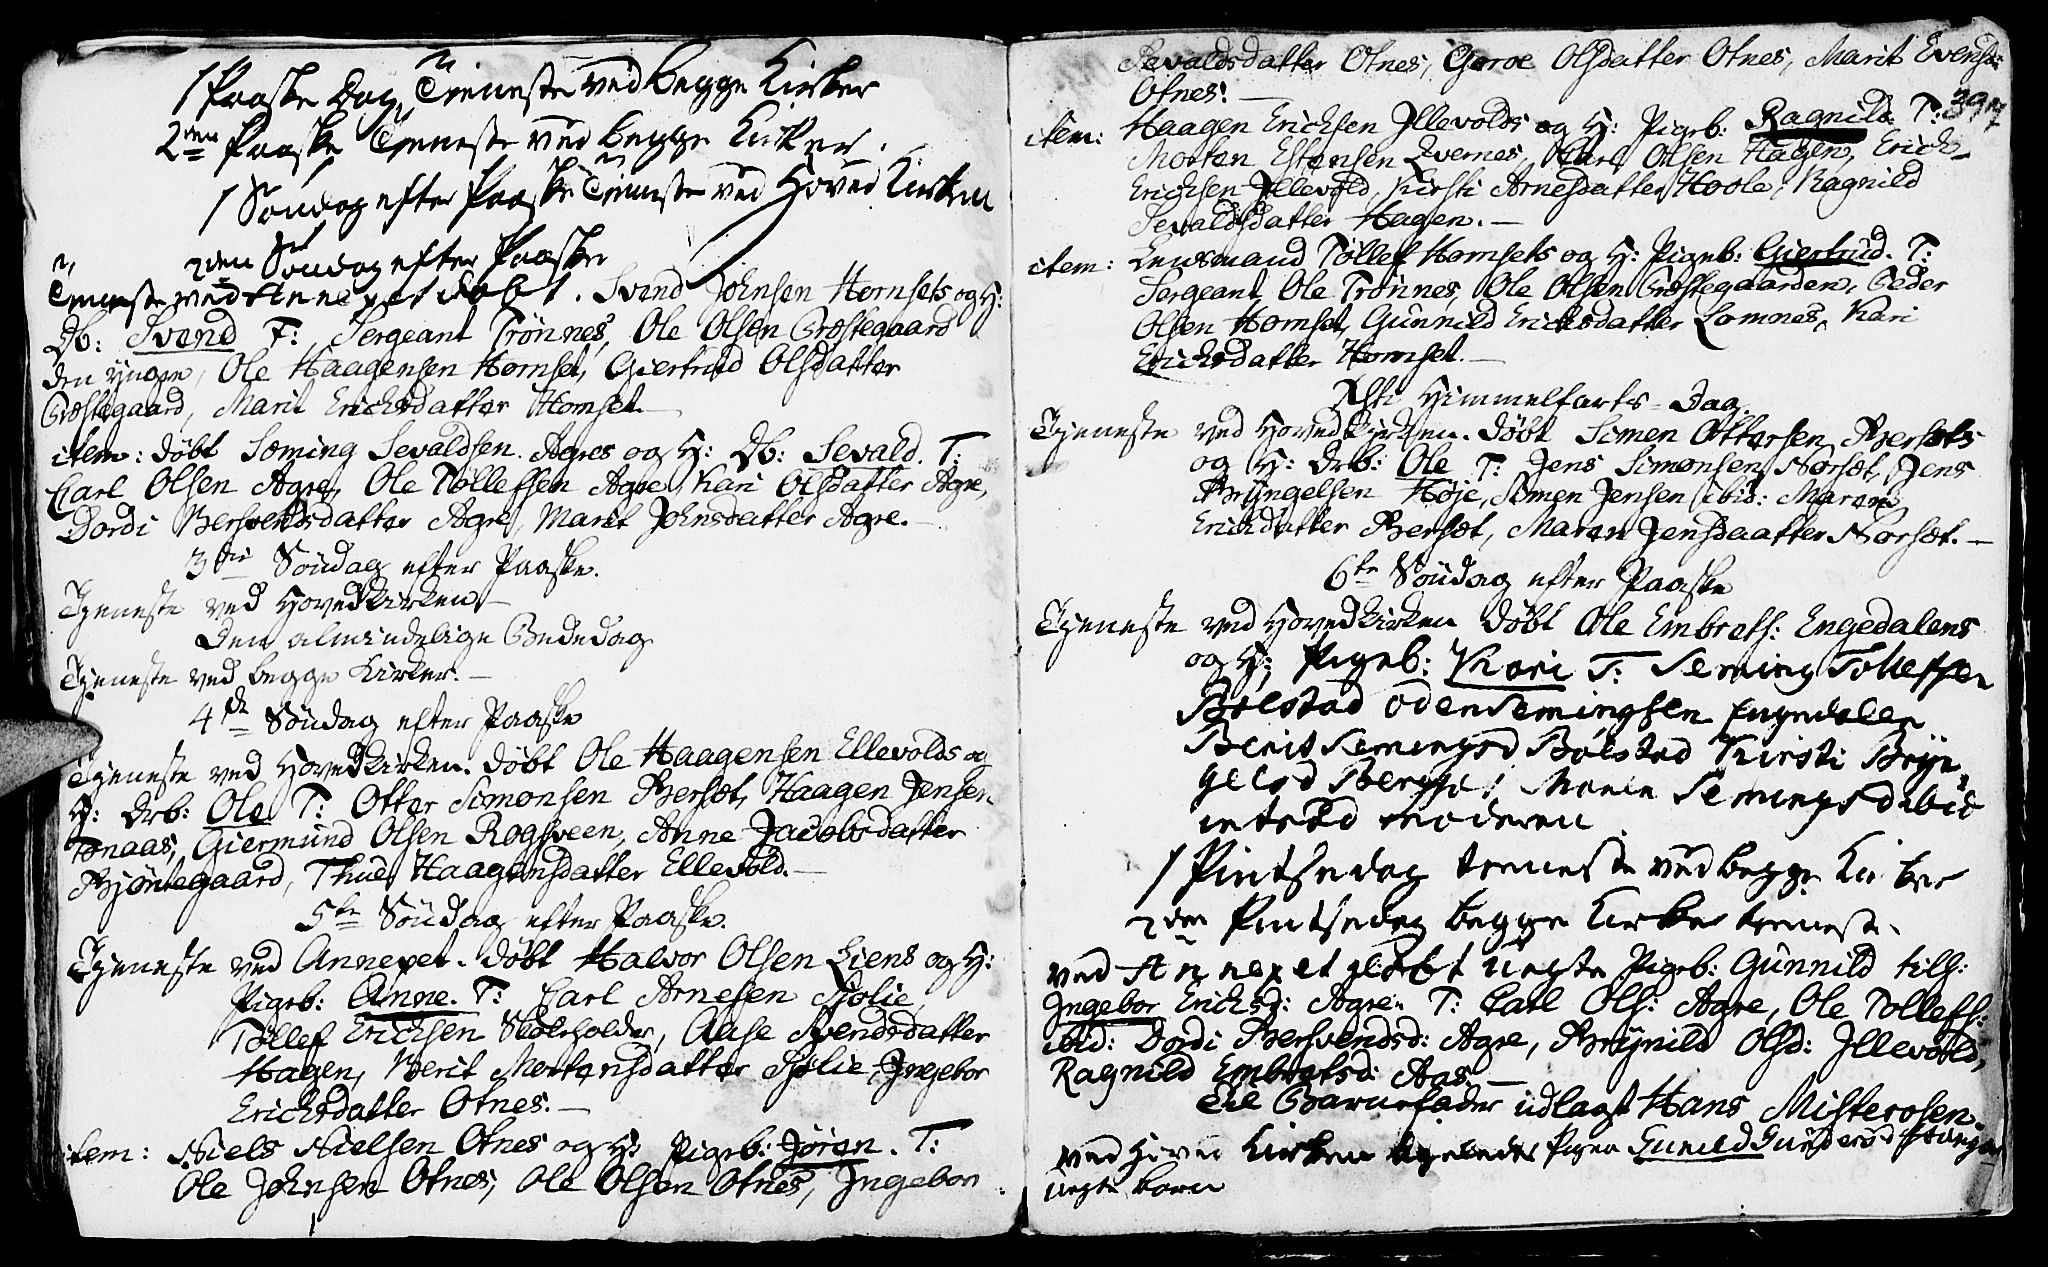 1 Paaske Dag, Tieneste ved begge Kirker
2den Paaske Tieneste ved begge Kirker.
1 Søndag efter Paaske Tieneste ved Hoved Kirken
2den Søndag efter Paaske
Tieneste ved Annexet døbt. Svend Johnsen Homsets og H:
Db: Svend T: Sergeant Trønnes, Ole Olsen Præstegaard
den yngre, Ole Haagensen Homset, Giertrud Olsdatter
Præstegaard, Marit Erichsdatter Homset.—
item: døbt Sæming Sevaldsen Agres og H: Db: Sevald. T:
Carl Olsen Agre, Ole Tollefsen Agre, Kari Olsdatter Agre,
Dordi Bersvendsdatter Agre, Marit Johnsdatter Agre.—
3die Søndag efter Paaske.
Tjeneste ved Hovedkirken.—
Den almindelige Bededag
Tjeneste ved begge Kirker.—
4de Søndag efter Paaske
Tjeneste ved Hovedkirken. døbt Ole Haagensen Ellevolds og
H: Drb: Ole T: Otter Simonsen Bersæt, Haagen Jensen
Tønaas, Giermund Olsen Rogsveen, Anne Jacobsdatter
Bjøntegaard, Thue Haagensdatter Ellevold.—
5te Søndag efter Paaske.
Tjeneste ved Annexet. døbt Halvor Olsen Liens og H:
Pigeb: Anne. T: Carl Arnesen Sjølie,
Tollef Erichsen Skoleholder, Aase Svendsdatter
Hagen, Berit Mortensdatter Sjølie, Ingebor
Erichsdatter Otnes.—
item: Niels Nielsen Otnes og H: Pigeb: Jøran. T:
Ole Johnsen Otnes, Ole Olsen Otnes, Ingebor
Sevaldsdatter Otnes, Goroe Olsdatter Otnes, Marit Evensd:
Otnes.—
397
item: Haagen Erichsen Illevolds og H: Pigeb: Ragnild. T:
Morten Estensen Qvernes, Carl Olsen Hagen, Erich
Erichsen Illevold, Kirsti Arnesdatter Hoole, Ragnild
Sevaldsdatter Hagen.—
item: Lensmand Tollef Homsets og H: Pigeb: Giertrud. T:
Sergeant Ole Trønnes, Ole Olsen Præstegaarden, Peder
Olsen Homset, Gunnild Erichsdatter Lomnes, Kari
Erichsdatter Homset.—
Xsti Himmelfarts-Dag.
Tjeneste ved Hovedkirken. døbt Simen Ottersen Bersæts
og H: Drb: Ole T: Jens Simonsen Norsæt, Jens
Bryngelsen Høje, Simen Jensen ibid: Maren
Erichdatter Bersæt, Maren Jensdaatter Norsæt.—
6te Søndag efter Paaske
Tjeneste ved Hovedkirken døbt Ole Embrets: Engedalens
og H: Pigeb: Kari T: Seming Tollefsen
Bolstad Oden Semingsen Engedalen
Berit Semingsd Bolstad Kirsti Bryn
gelsd Berget Maren Semingsd ibid
introd moderen
1 Pintsedag tieneste ved begge Kirker
2den Pintsedag begge Kirker tieneste.
ved Annexet døbt uegte Pigeb: Gunnild tilh:
Ingebor Erichsd: Agre. T: Carl Ols: Agre, Ole Tollefs:
ibid: Dordi Bersvendsd: Agre, Brynild Olsd: Illevold,
Ragnild Embretsd: Aas.—
til Barnefader udlagt Hans Misterosen.
ved Hoved Kirken Pigen Gunild Gundersd
uegte barn